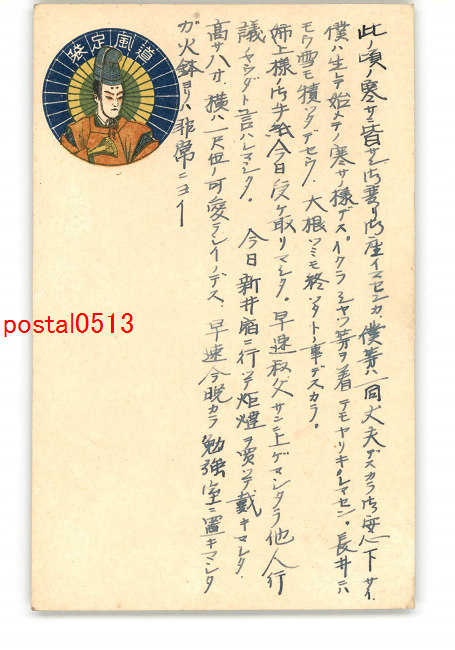 道風定裝
此ノ頃ノ寒サ皆サン御変リ御座イマセンカ、僕等ハ一同丈夫デスカラ御安心下サイ。
僕ハ生レテ始メテノ寒サノ様デス。イクラシャツ等ヲ着テモヤリキレマセン。長井ニハ
モウ雪モ積ッタデセウ、大根ツミモ終ッタトノ事デスカラ。
姉上様ノ御手紙今日受ケ取リマシタ。早速叔父サンニ上ゲマシタラ他人行
議ノヤウダト言ハレマシタ。 今日新井宿ニ行ッテ炬燵ヲ買ッテ戴キマシタ。
高サハ 横ハ一尺位ノ可愛ラシイノデス、早速今晩カラ勉強室ニ置キマシタ
ガ火鉢ヨリハ非常ニヨイ
postal0513